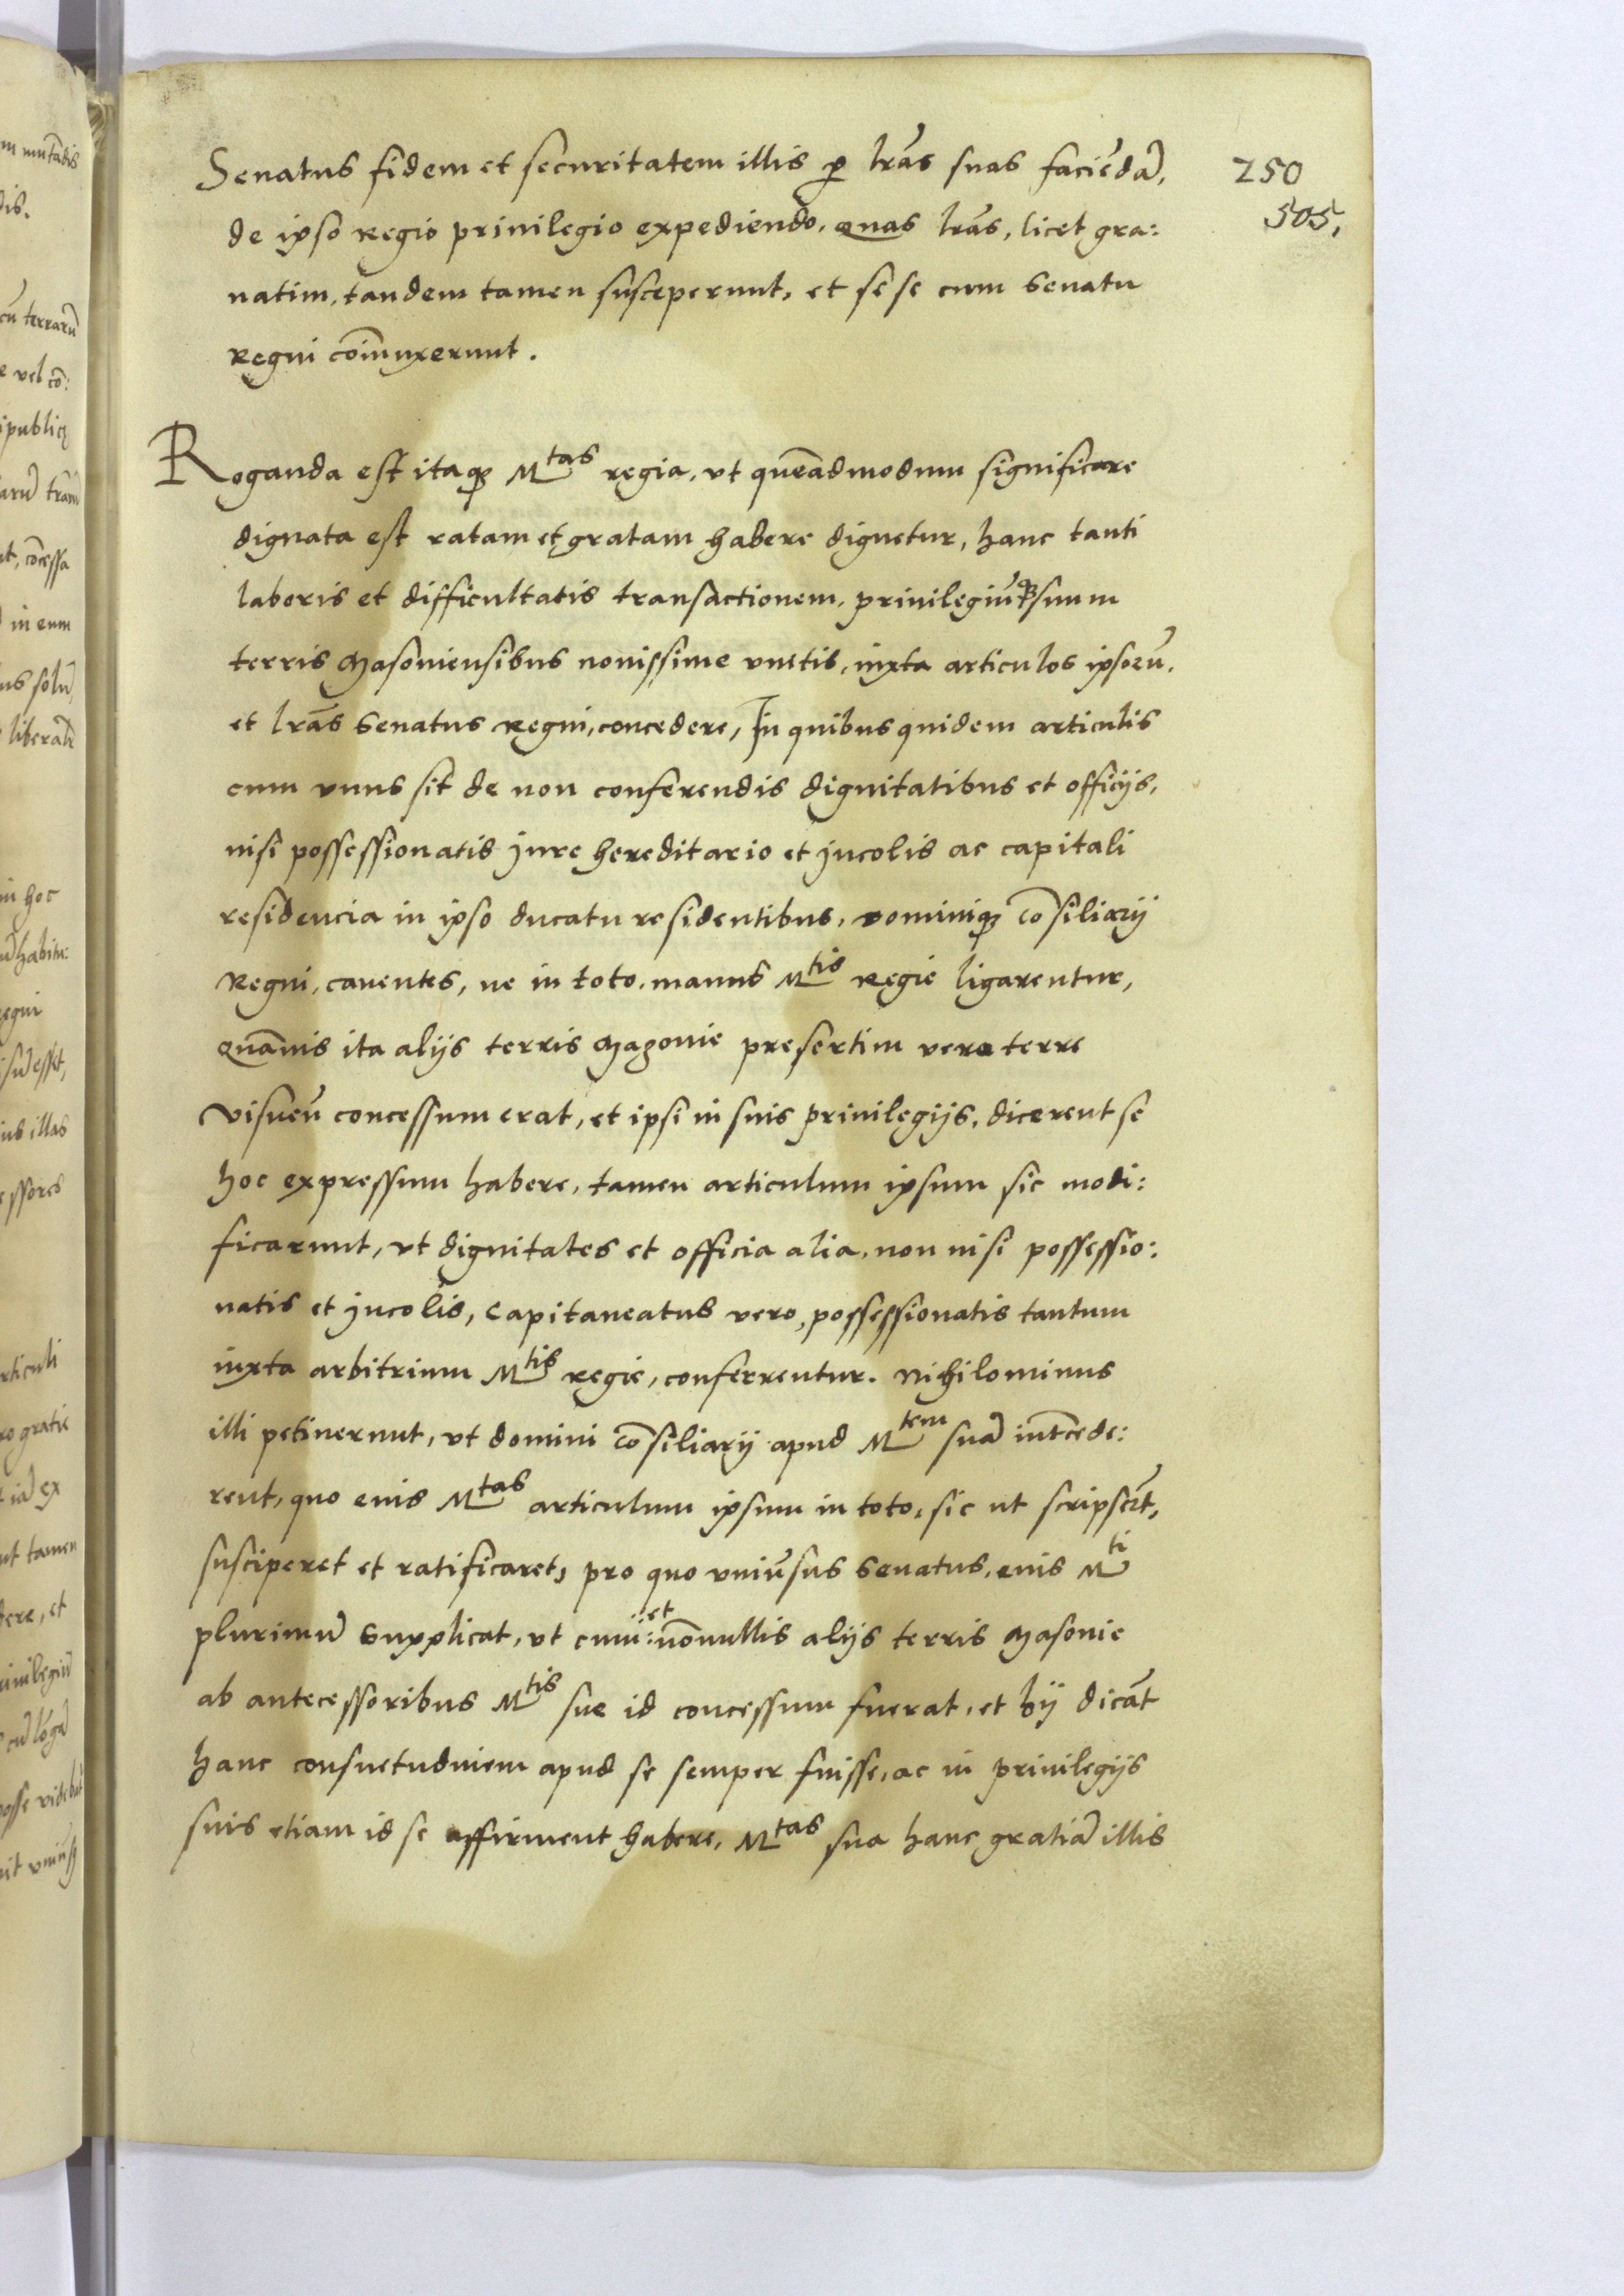 250
505,
Senatus fidem et securitatem illis ꝑ lr̃as suas faciẽdã,
de ipso Regio priuilegio expediendo, quas lr̃as, licet gra:
uatim, tandem tamen susceperunt, et se se cum Senatu
Regni cõiunxerunt.
Roganda est itaqꝫ M^tas regia, vt quẽadmodum significare
dignata est ratam et gratam habere dignetur, hanc tanti
laboris et difficultatis transactionem, priuilegiũqꝫ suum
terris Masouiensibus nouissime vnitis, iuxta articulos ipsorũ,
et lr̃as Senatus Regni, concedere, In quibus quidem articulis
cum vnus sit de non conferendis dignitatibus et officijs,
nisi possessionatis jure hereditario et jncolis ac capitali
residencia in ipso ducatu residentibus, dominiqꝫ cõsiliarij
Regni, cauentes, ne in toto, manus M^tis Regie ligarentur,
quãuis ita alijs terris Mazouie presertim vero terre
Visneñ concessum erat, et ipsi in suis priuilegijs, dicerent se
hoc expressum habere, tamen articulum ipsum sic modi:
ficarunt, vt dignitates et officia alia, non nisi possessio:
natis et jncolis, Capitaneatus vero, possessionatis tantum
iuxta arbitrium M^tis regie, conferrentur. Nihilominus
illi petiuerunt, vt domini cõsiliarij apud M^tem suã int̃cede:
rent, quo eius M^tas articulum ipsum in toto, sic ut scripser̃t,
susciperet et ratificaret, pro quo vniũsus Senatus, eius M^ti
plurimũ Supplicat, vt cum: et nõnullis alijs terris Masouie
ab antecessoribus M^tis sue id concessum fuerat, et hij dicãt
hanc consuetudinem apud se semper fuisse, ac in priuilegijs
suis etiam id se affirment habere, M^tas sua hanc gratiã illis